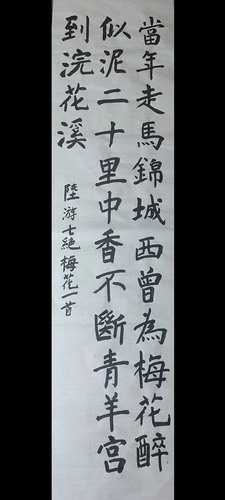 當年走馬錦城西曾為梅花醉
似泥二十里中香不斷青羊宮
到浣花溪
陸游七絕梅花一首